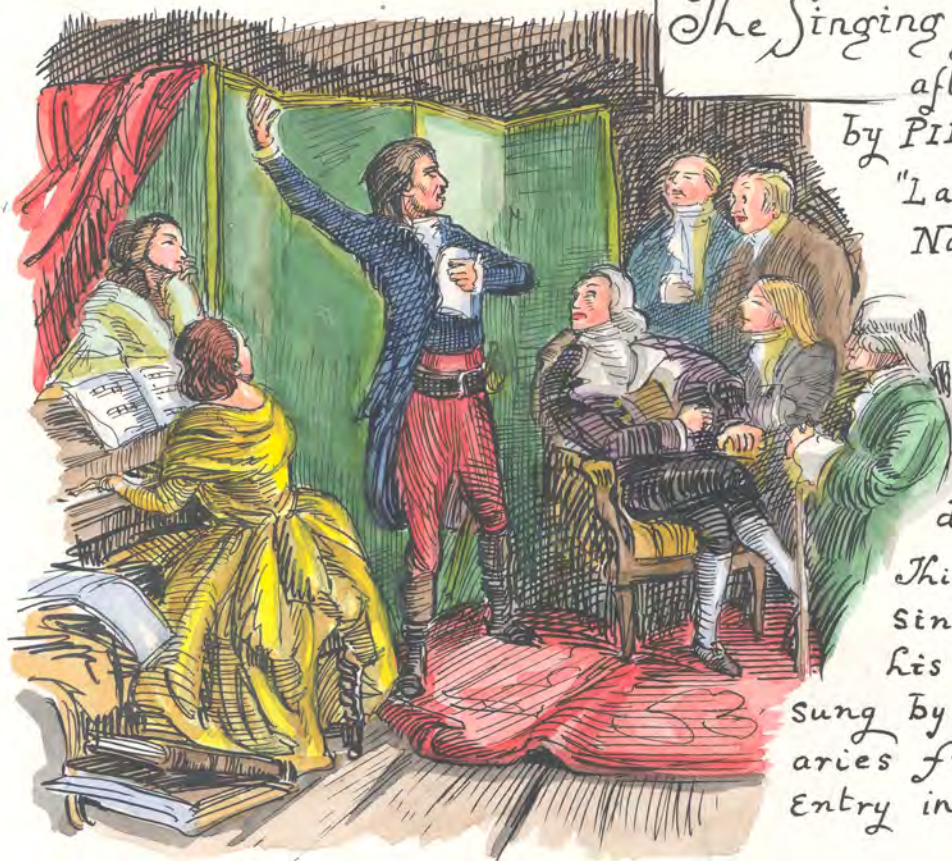 The Singing
aft
by PI
"La
N
d
Thi
sin
his
sung by
aries f
Entry in